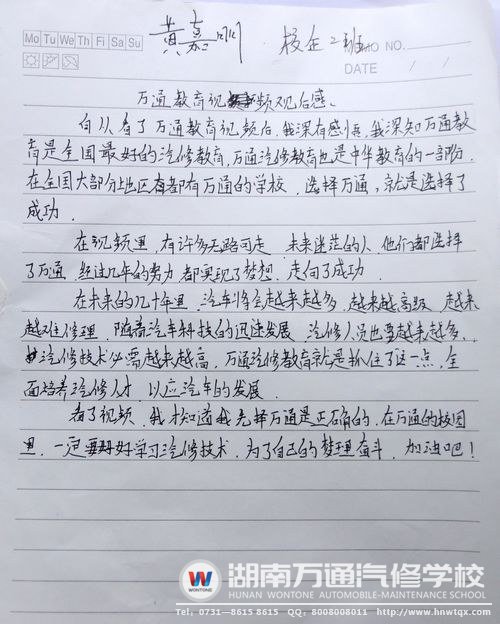 Mo Tu We Th Fri Sa Su
黄嘉 校企二班
MO NO.
DATE / /
万通教育视频观后感、
自从看了万通教育视频后,我深有感悟,我深知万通教
育是全国最好的汽修教育,万通汽修教育也是中华教育的一部份,
在全国大部分地区有都有万通的学校,选择万通,就是选择了
成功.
在视频里,有许多无路可走,未来迷茫的人,他们都选择
了万通,经过几年的努力,都实现了梦想,走向了成功.
在未来的几十年里,汽车将会越来越多,越来越高级,越来
越难修理,随着汽车科技的迅速发展,汽修人员也要越来越多、
汽修技术必需越来越高,万通汽修教育就是抓住了这一点,全
面培养汽修人才,以应汽车的发展.
看了视频,我才知道我选择万通是正确的,在万通的校园
里,一定要好好学习汽修技术,为了自己的梦理奋斗,加油吧!
WONTONE
湖南万通汽修学校
HUNAN WONTONE AUTOMOBILE-MAINTENANCE SCHOOL
Tel:0731—8615 8615 QQ:8008008011 http://www.hnwtqx.com